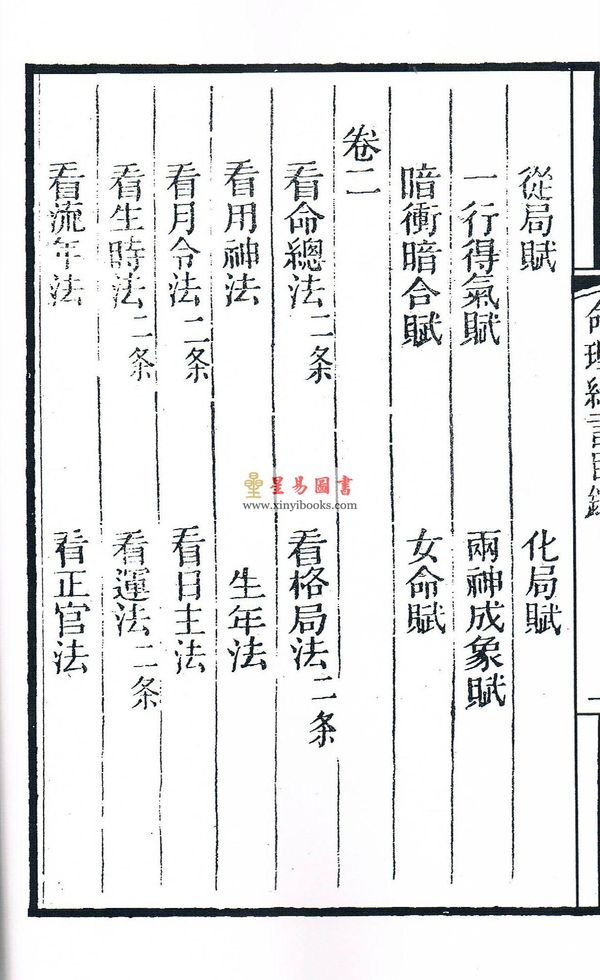 從局賦 化局賦
一行得氣賦 兩神成象賦
暗衝暗合賦 女命賦
卷二
看命總法二条 看格局法二条
看用神法 生年法
看月令法二条 看日主法
看生時法二条 看運法二条
看流年法 看正官法
星易圖書
www.xinyibooks.com